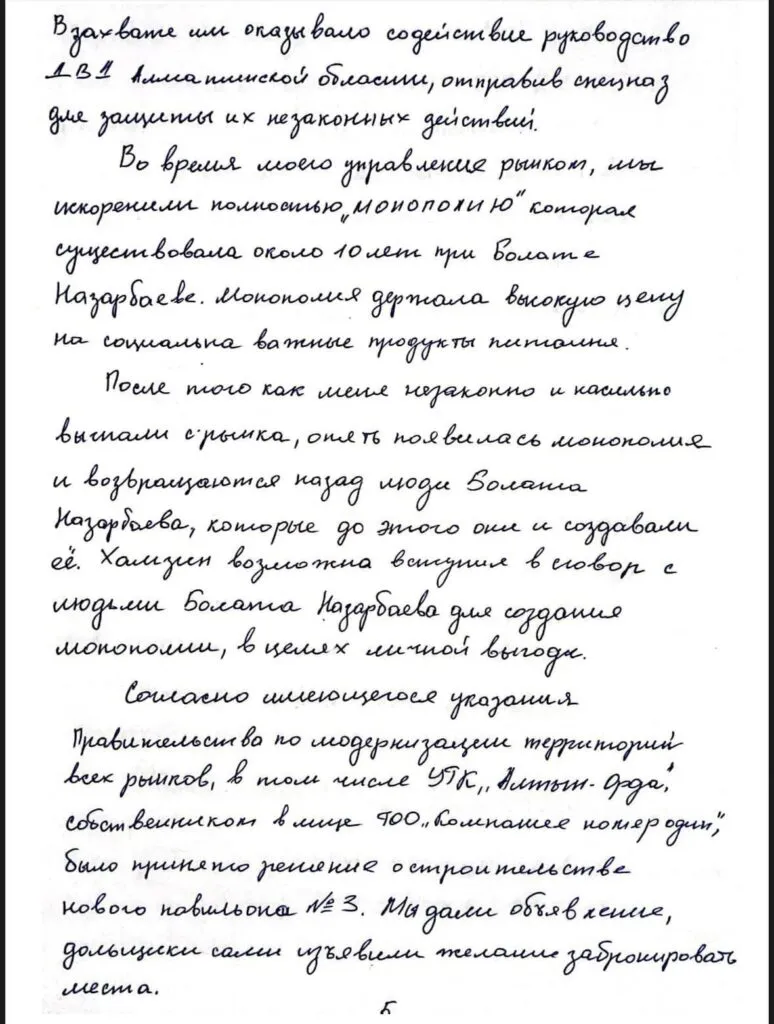 В захвате им оказывало содействие руководство
ДВД Алматинской области, отправив спецназ
для защиты их незаконных действий.
Во время моего управление рынком, мы
искоренили полностью „МОНОПОЛИЮ" которая
существовала около 10 лет при Болате
Назарбаеве. Монополия держала высокую цену
на социальна важные продукты питания.
После того как меня незаконно и насильно
выгнали с рынка, опять появилась монополия
и возвращаются назад люди Болата
Назарбаева, которые до этого они и создавали
её. Хамзин возможна вступил в сговор с
людьми Болата Назарбаева для создания
монополии, в целях личной выгоды.
Согласно имеющегося указания
Правительства по модернизации территорий
всех рынков, в том числе УТК „Алтын-Орда",
собственником в лице ТОО „Компания номер один",
было принято решение о строительстве
нового павильона №3. Мы дали объявление,
дольщики сами изъявили желание забронировать
места.
5